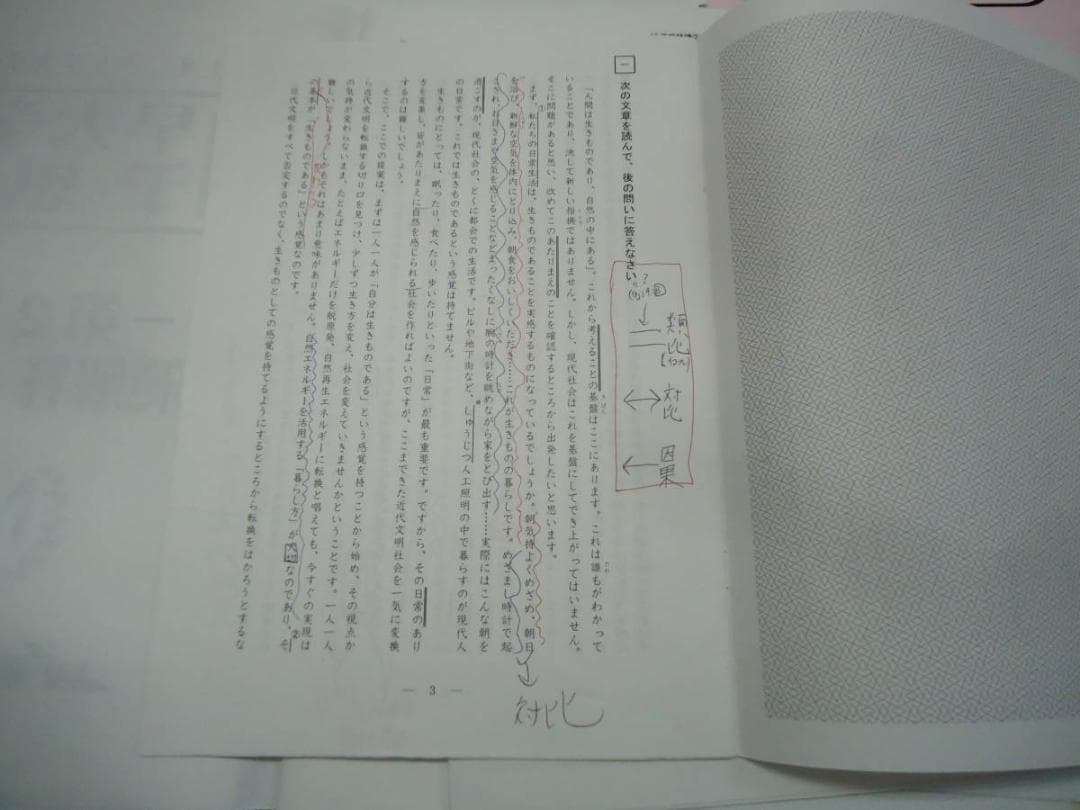 一 次の文章を読んで、後の問いに答えなさい。
「人間は生きものであり、自然の中にある」。これから考えることの基盤はここにあります。これは誰もがわかって
いることであり、決して新しい指摘ではありません。しかし、現代社会はこれを基盤にしてでき上がってはいません。
そこに問題があると思い、改めてこのあたりまえのことを確認するところから出発したいと思います。
まず、私たちの日常生活は、生きものであることを実感するものになっているでしょうか。朝気持よくめざめ、朝日
を浴び、新鮮な空気を体内にとり込み、朝食をおいしくいただき……これが生きものの暮らしです。めざまし時計で起
こされ、お日さまや空気を感じることなどまったくなしに腕の時計を眺めながら家をとび出す……実際にはこんな朝を
過ごすのが、現代社会の、とくに都会での生活です。ビルや地下街など、しゅうじつ人工照明の中で暮らすのが現代人
の日常です。これでは生きものであるという感覚は持てません。
生きものにとっては、眠ったり、食べたり、歩いたりといった「日常」が最も重要です。ですから、その日常のあり
方を変革し、皆があたりまえに自然を感じられる社会を作ればよいのですが、ここまできた近代文明社会を一気に変換
するのは難しいでしょう。
そこで、ここでの提案は、まずは一人一人が「自分は生きものである」という感覚を持つことから始め、その視点か
ら近代文明を転換する切り口を見つけ、少しずつ生き方を変え、社会を変えていきませんかということです。一人一人
の気持が変わらないまま、たとえばエネルギーだけを脱原発、自然再生エネルギーに転換と唱えても、今すぐの実現は
難しいでしょう。しかもそれはあまり意味がありません。自然エネルギーを活用する「暮らし方」が大切なのであり、そ
の基本が「生きものである」という感覚なのです。
近代文明をすべて否定するのでなく、生きものとしての感覚を持てるようにするところから転換をはかろうとするな
①
②
きばん
してき
だれ
類比
対比
因果
対比
― 3 ―